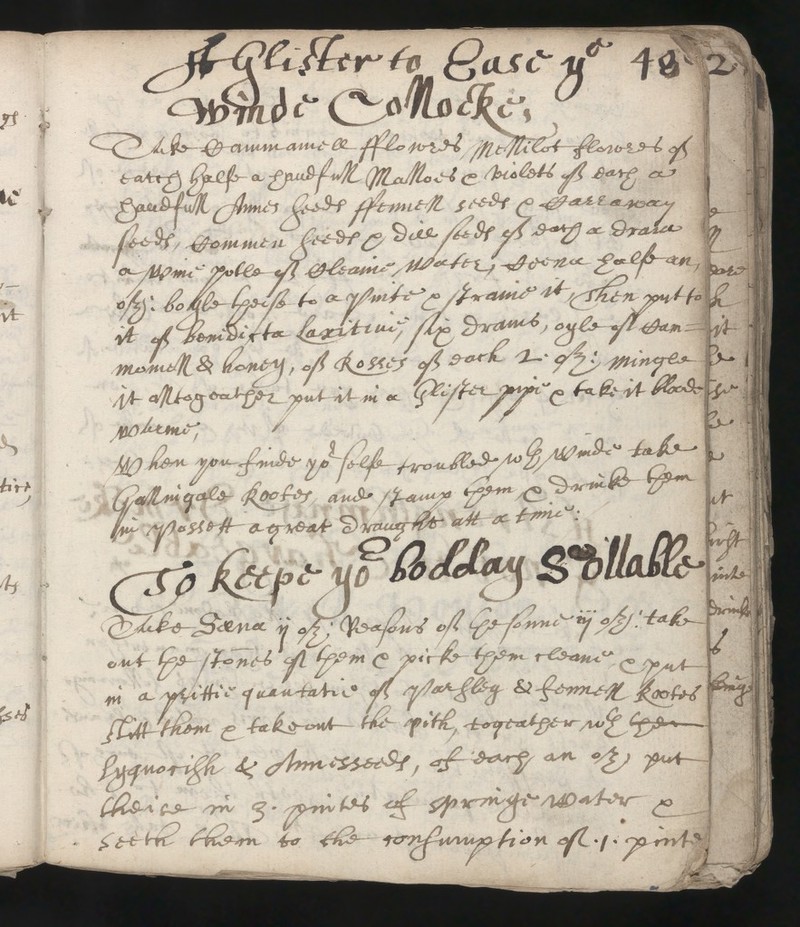 A Glister to Ease yᵉ 48
Winde Collocke,
Take Cammamell fflowres Mellilot flowres of
eatch halfe a handfull Malloes & violets of each a
handfull Annes seeds ffennell seeds & Carraway
seeds, Commen seeds & dill seeds of each a dram
a wine potle of Cleane Water, Seena halfe an,
ozj: boyle theise to a pinte & straine it, Then put to
it of benidicta laxitive, six drams, oyle of Cam=
momell & honey, of Rosses of each 2. ozj: mingle
it altogeather put it in a Glister pipe & take it bloode
warme,
When you finde yoʳ selfe troubled wth winde take
Gallingale Rootes, and stamp them & drinke them
in possett a great draught att a time:
To keepe yoʳ bodday Sollable
Take Sæna ij ozj: Reasons of the sonne iij ozj: take
out the stones of them & picke them cleane, & put
in a prittie quantatie of parsley & fennell Rootes
slitt them & take out the pith, togeather wth the
lyquorish & Annesseeds, of each an ozj put
theise in 3. pintes of springe water &
seeth them to the consumption of .1. pinte
2